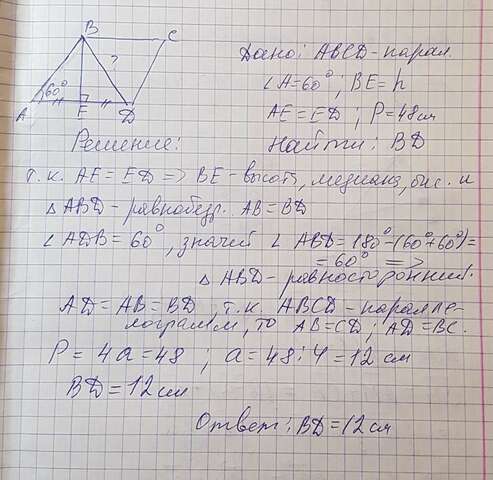 B C
?
60°
A E D
Дано: ABCD - парал.
∠A=60°; BE=h
AE=ED; P=48см
Найти: BD
Решение:
т.к. AE=ED => BE - высота, медиана, бис. и
△ABD - равнобедр. AB=BD
∠ADB=60°, значит ∠ABD=180°-(60°+60°)=
=60° =>
△ABD - равносторонний.
AD=AB=BD, т.к. ABCD - паралле-
лограмм, то AB=CD; AD=BC.
P=4a=48; a=48:4=12 см
BD=12см
Ответ: BD=12см